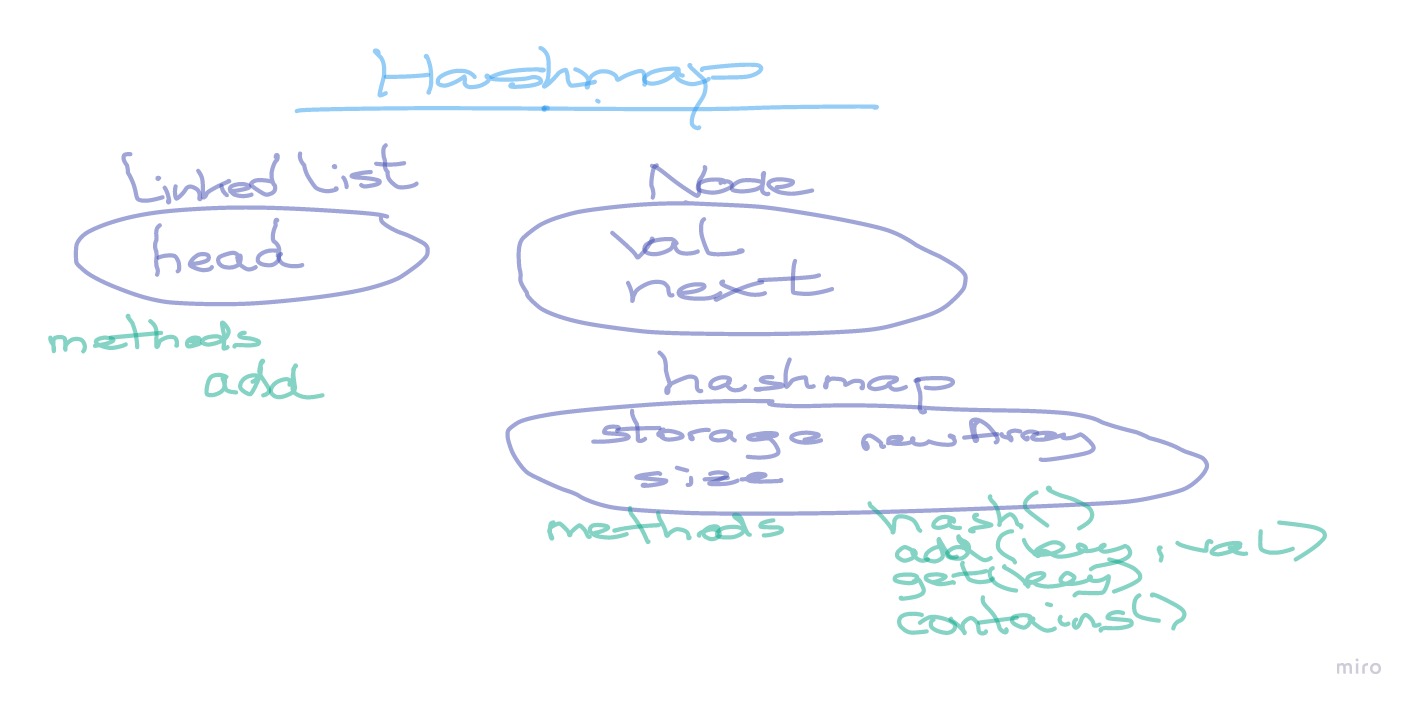 Hashmap
Linked List
head
methods
add
Node
val
next
hashmap
storage new Array
size
methods hash()
add(key, val)
get(key)
contains()
miro